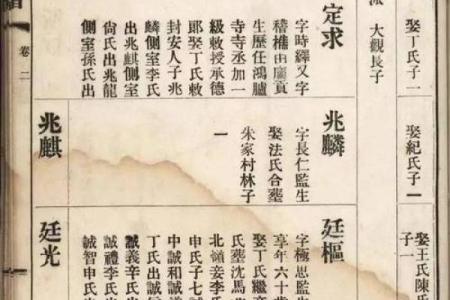 派　大觀長子
娶丁氏子一
定求
字時繹又字
稽樵由廩貢
生歷任鴻臚
寺寺丞加一
級敕授承德
郎娶丁氏敕
封安人子兆
麟側室李氏
出兆麒側室
尙氏出兆龍
側室孫氏出
卷二
娶紀氏子一
兆麟
字長仁監生
娶法氏合塟
朱家村林子
一
兆麒
娶王氏陳氏
子一
廷樞
字極思監生
享年六十歲
娶丁氏繼
氏塟沈馬
北嶺妾李氏
申氏子七誠
中誠和誠
丁氏出誠
誠義辛氏出
誠禮李氏出
誠智申氏出
廷光